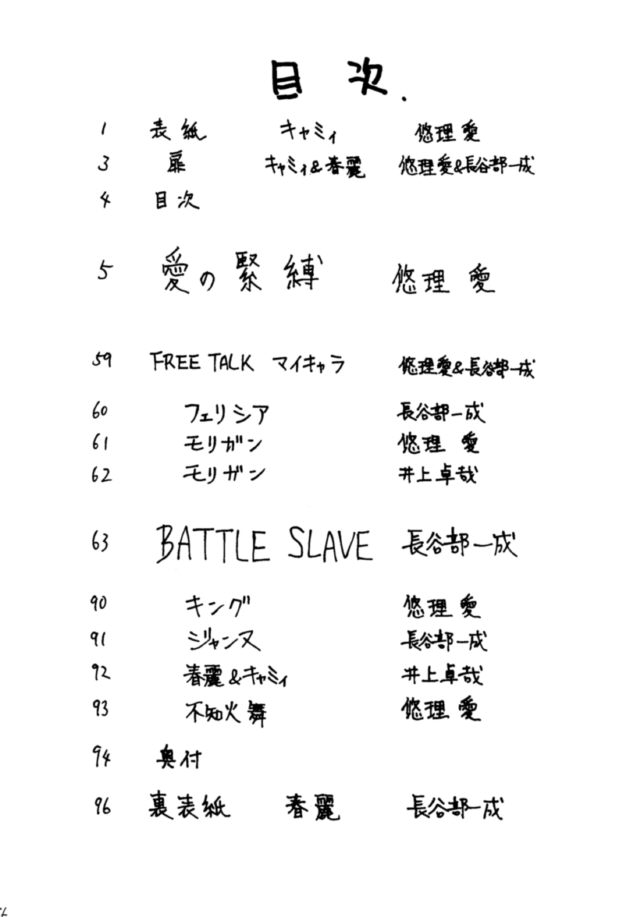 目次.
1 表紙 キャミィ 悠理愛
3 扉 キャミィ&春麗 悠理愛&長谷部一成
4 目次
5 愛の緊縛 悠理愛
59 FREE TALK マイキャラ 悠理愛&長谷部一成
60 フェリシア 長谷部一成
61 モリガン 悠理愛
62 モリガン 井上卓哉
63 BATTLE SLAVE 長谷部一成
90 キング 悠理愛
91 ジャンヌ 長谷部一成
92 春麗&キャミィ 井上卓哉
93 不知火舞 悠理愛
94 奥付
96 裏表紙 春麗 長谷部一成